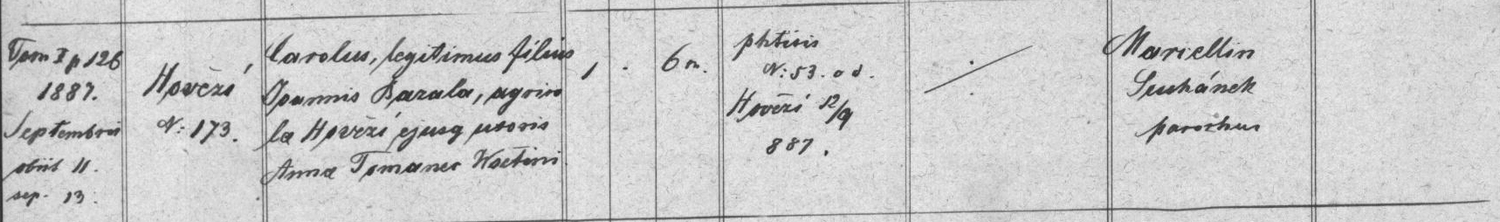 Tom I p 126
1887.
Septembris
obiit 11.
sep. 13.
Hovězí
N: 173.
Carolus, legitimus filius
Joannis Bazala, agrico
la Hovězí ejusq uxoris
Anna Tomanec Wsetini
1 .
6 m.
phtisis
N: 53. o d.
Hovězí 12/9
887.
Mariellin
Suchánek
parochus